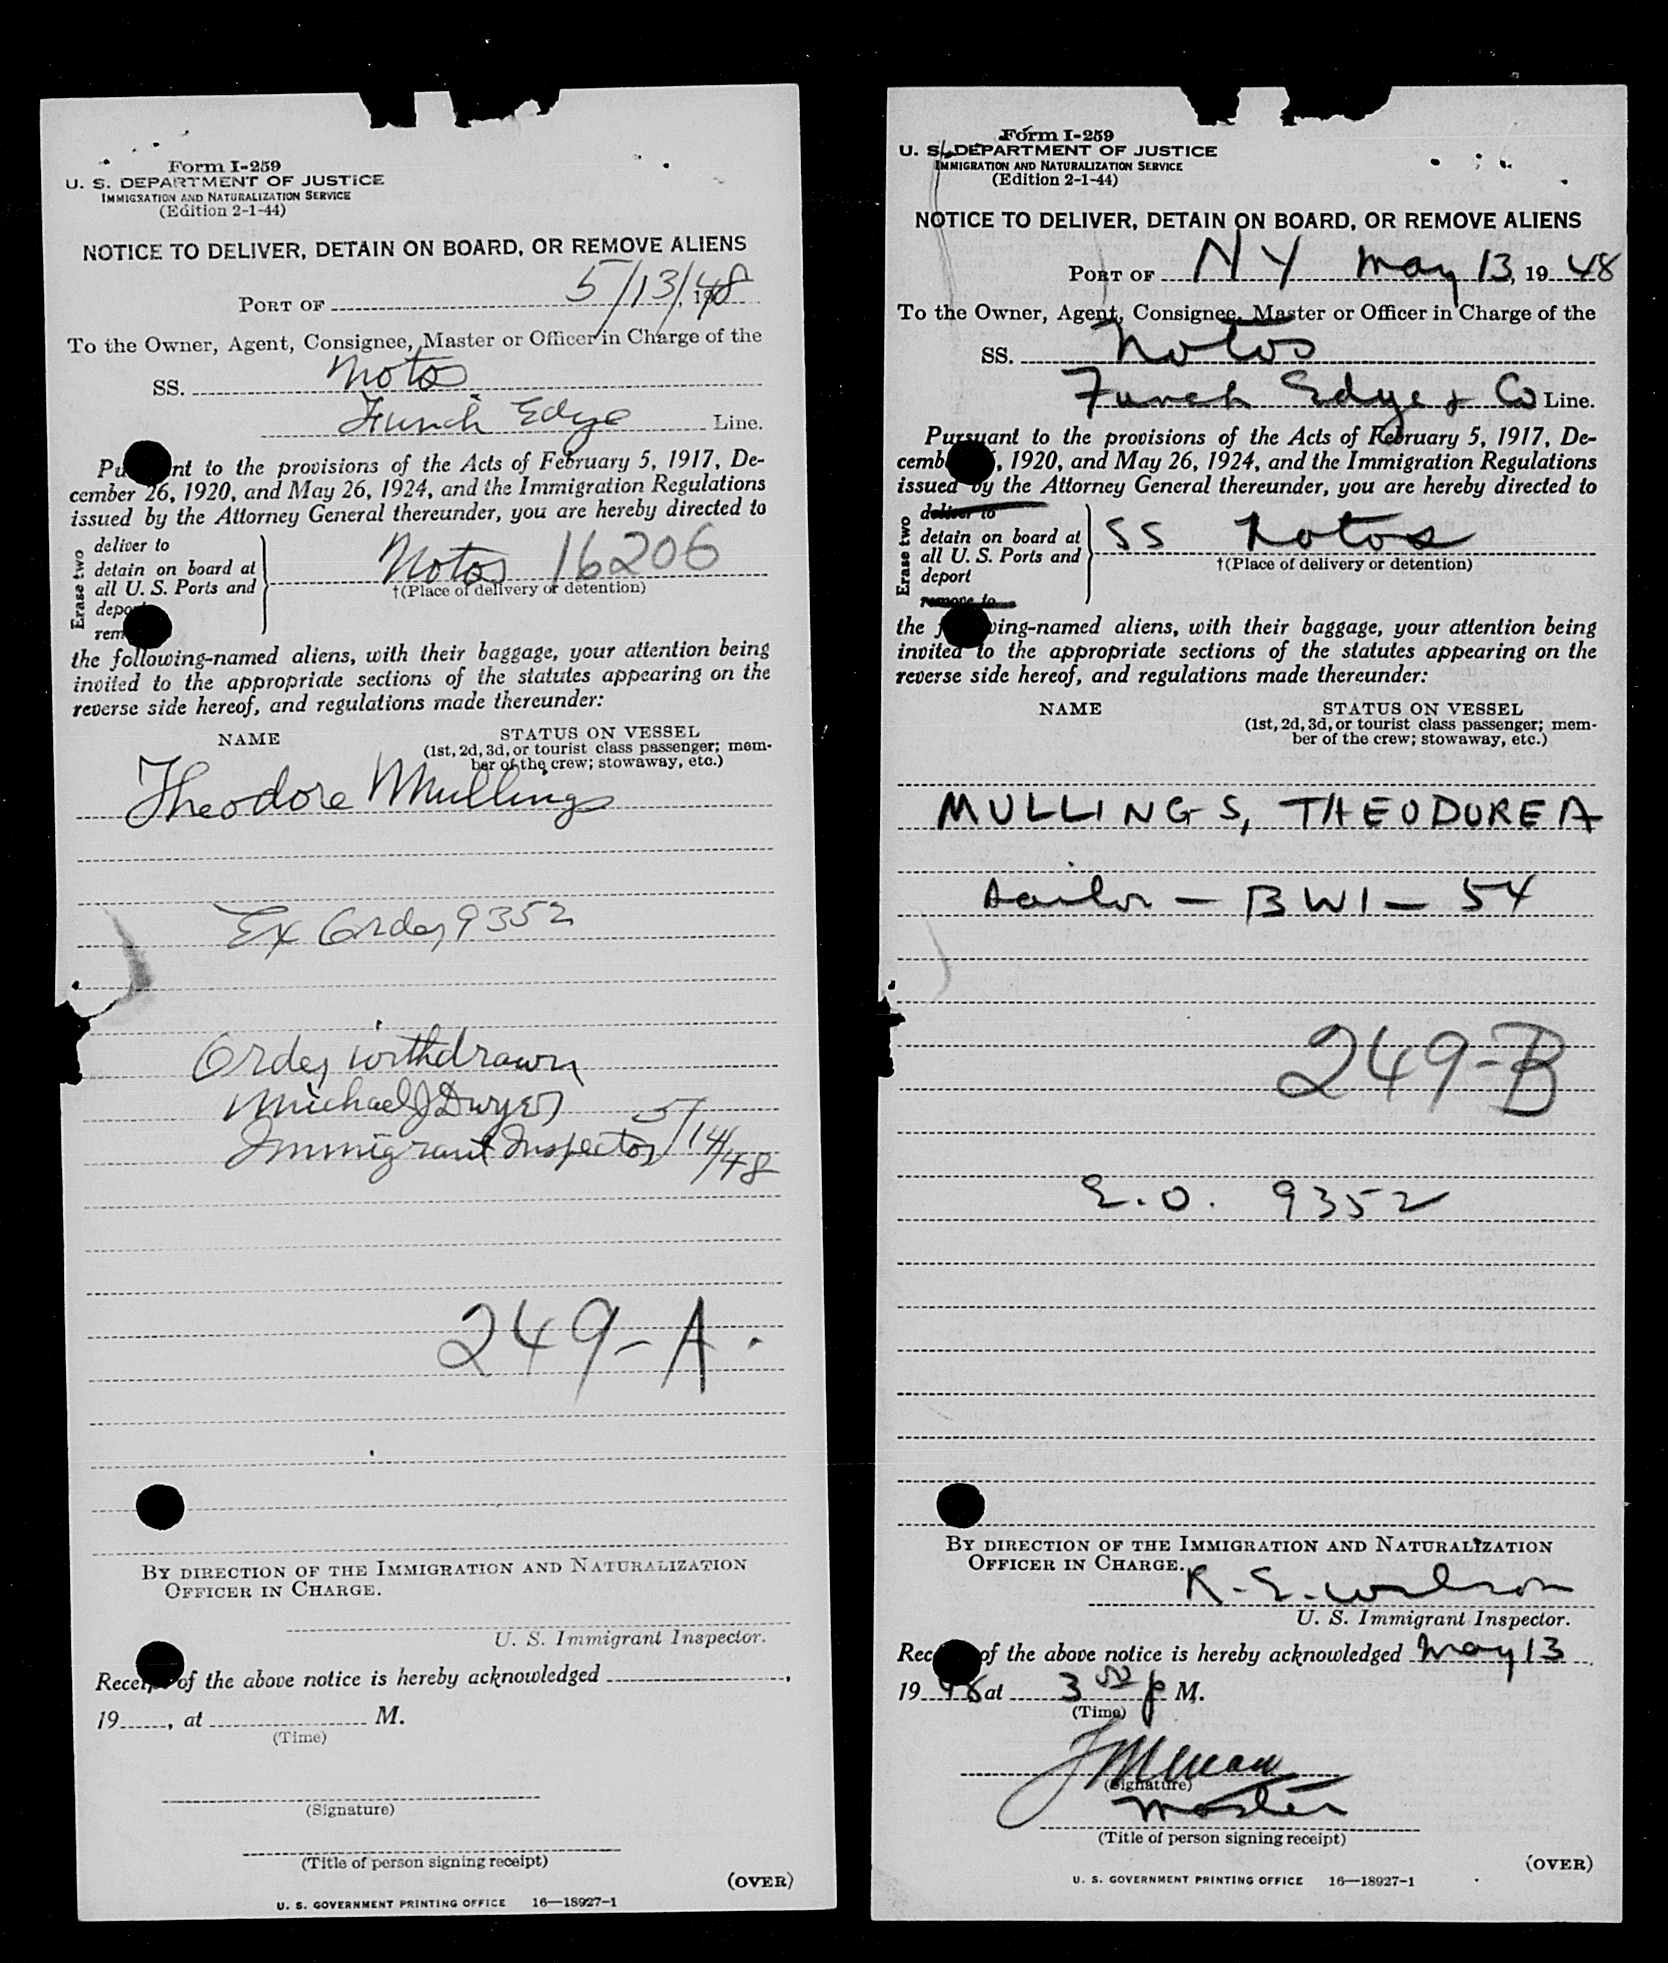 Form I-259
U. S. DEPARTMENT OF JUSTICE
IMMIGRATION AND NATURALIZATION SERVICE
(Edition 2-1-44)
NOTICE TO DELIVER, DETAIN ON BOARD, OR REMOVE ALIENS
PORT OF 5/13/48
To the Owner, Agent, Consignee, Master or Officer in Charge of the
SS. Notos
Funch Edye Line.
Pu nt to the provisions of the Acts of February 5, 1917, De-
cember 26, 1920, and May 26, 1924, and the Immigration Regulations
issued by the Attorney General thereunder, you are hereby directed to
Erase two
deliver to
detain on board at
all U. S. Ports and
depo
rem
Notos 16206
†(Place of delivery or detention)
the following-named aliens, with their baggage, your attention being
invited to the appropriate sections of the statutes appearing on the
reverse side hereof, and regulations made thereunder:
NAME STATUS ON VESSEL
(1st, 2d, 3d, or tourist class passenger; mem-
ber of the crew; stowaway, etc.)
Theodore Mullings
Ex Order 9352
Order withdrawn
Michael J Dwyer
Immigrant Inspector 5/14/48
249-A.
BY DIRECTION OF THE IMMIGRATION AND NATURALIZATION
OFFICER IN CHARGE.
U. S. Immigrant Inspector.
Receipt of the above notice is hereby acknowledged ,
19 , at M.
(Time)
(Signature)
(Title of person signing receipt)
(OVER)
U. S. GOVERNMENT PRINTING OFFICE 16—18927-1
Form I-259
U. S. DEPARTMENT OF JUSTICE
IMMIGRATION AND NATURALIZATION SERVICE
(Edition 2-1-44)
NOTICE TO DELIVER, DETAIN ON BOARD, OR REMOVE ALIENS
PORT OF NY May 13, 19 48
To the Owner, Agent, Consignee, Master or Officer in Charge of the
SS. Notos
Funch Edye & Co Line.
Pursuant to the provisions of the Acts of February 5, 1917, De-
cemb , 1920, and May 26, 1924, and the Immigration Regulations
issued by the Attorney General thereunder, you are hereby directed to
Erase two
deliver to
detain on board at
all U. S. Ports and
deport
remove to
SS Notos
†(Place of delivery or detention)
the f wing-named aliens, with their baggage, your attention being
invited to the appropriate sections of the statutes appearing on the
reverse side hereof, and regulations made thereunder:
NAME STATUS ON VESSEL
(1st, 2d, 3d, or tourist class passenger; mem-
ber of the crew; stowaway, etc.)
MULLINGS, THEODORE A
Sailor - BWI - 54
249-B
E.O. 9352
BY DIRECTION OF THE IMMIGRATION AND NATURALIZATION
OFFICER IN CHARGE.
R. E. Wilson
U. S. Immigrant Inspector.
Rec of the above notice is hereby acknowledged May 13
19 48 at 3 p M.
(Time)
(Signature)
Master
(Title of person signing receipt)
(OVER)
U. S. GOVERNMENT PRINTING OFFICE 16—18927-1